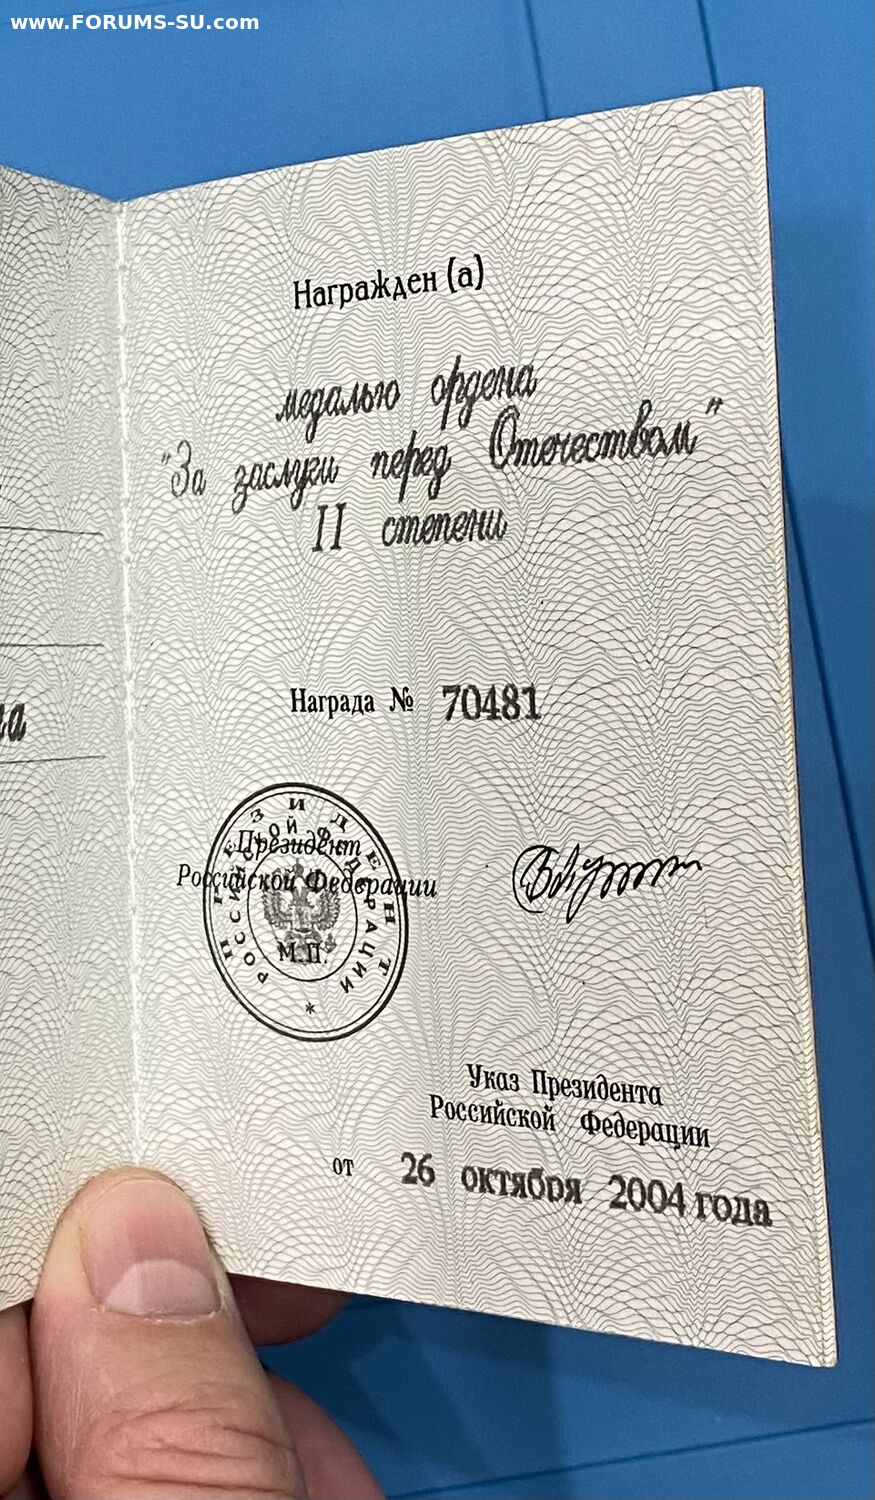 www.FORUMS-SU.com
Награжден (а)
медалью ордена
"За заслуги перед Отечеством"
II степени
Награда № 70481
Президент
Российской Федерации
М.П.
ПРЕЗИДЕНТ
РОССИЙСКОЙ ФЕДЕРАЦИИ
*
Указ Президента
Российской Федерации
от 26 октября 2004 года